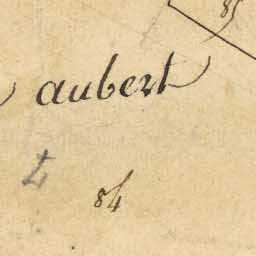 85
aubert
4
84